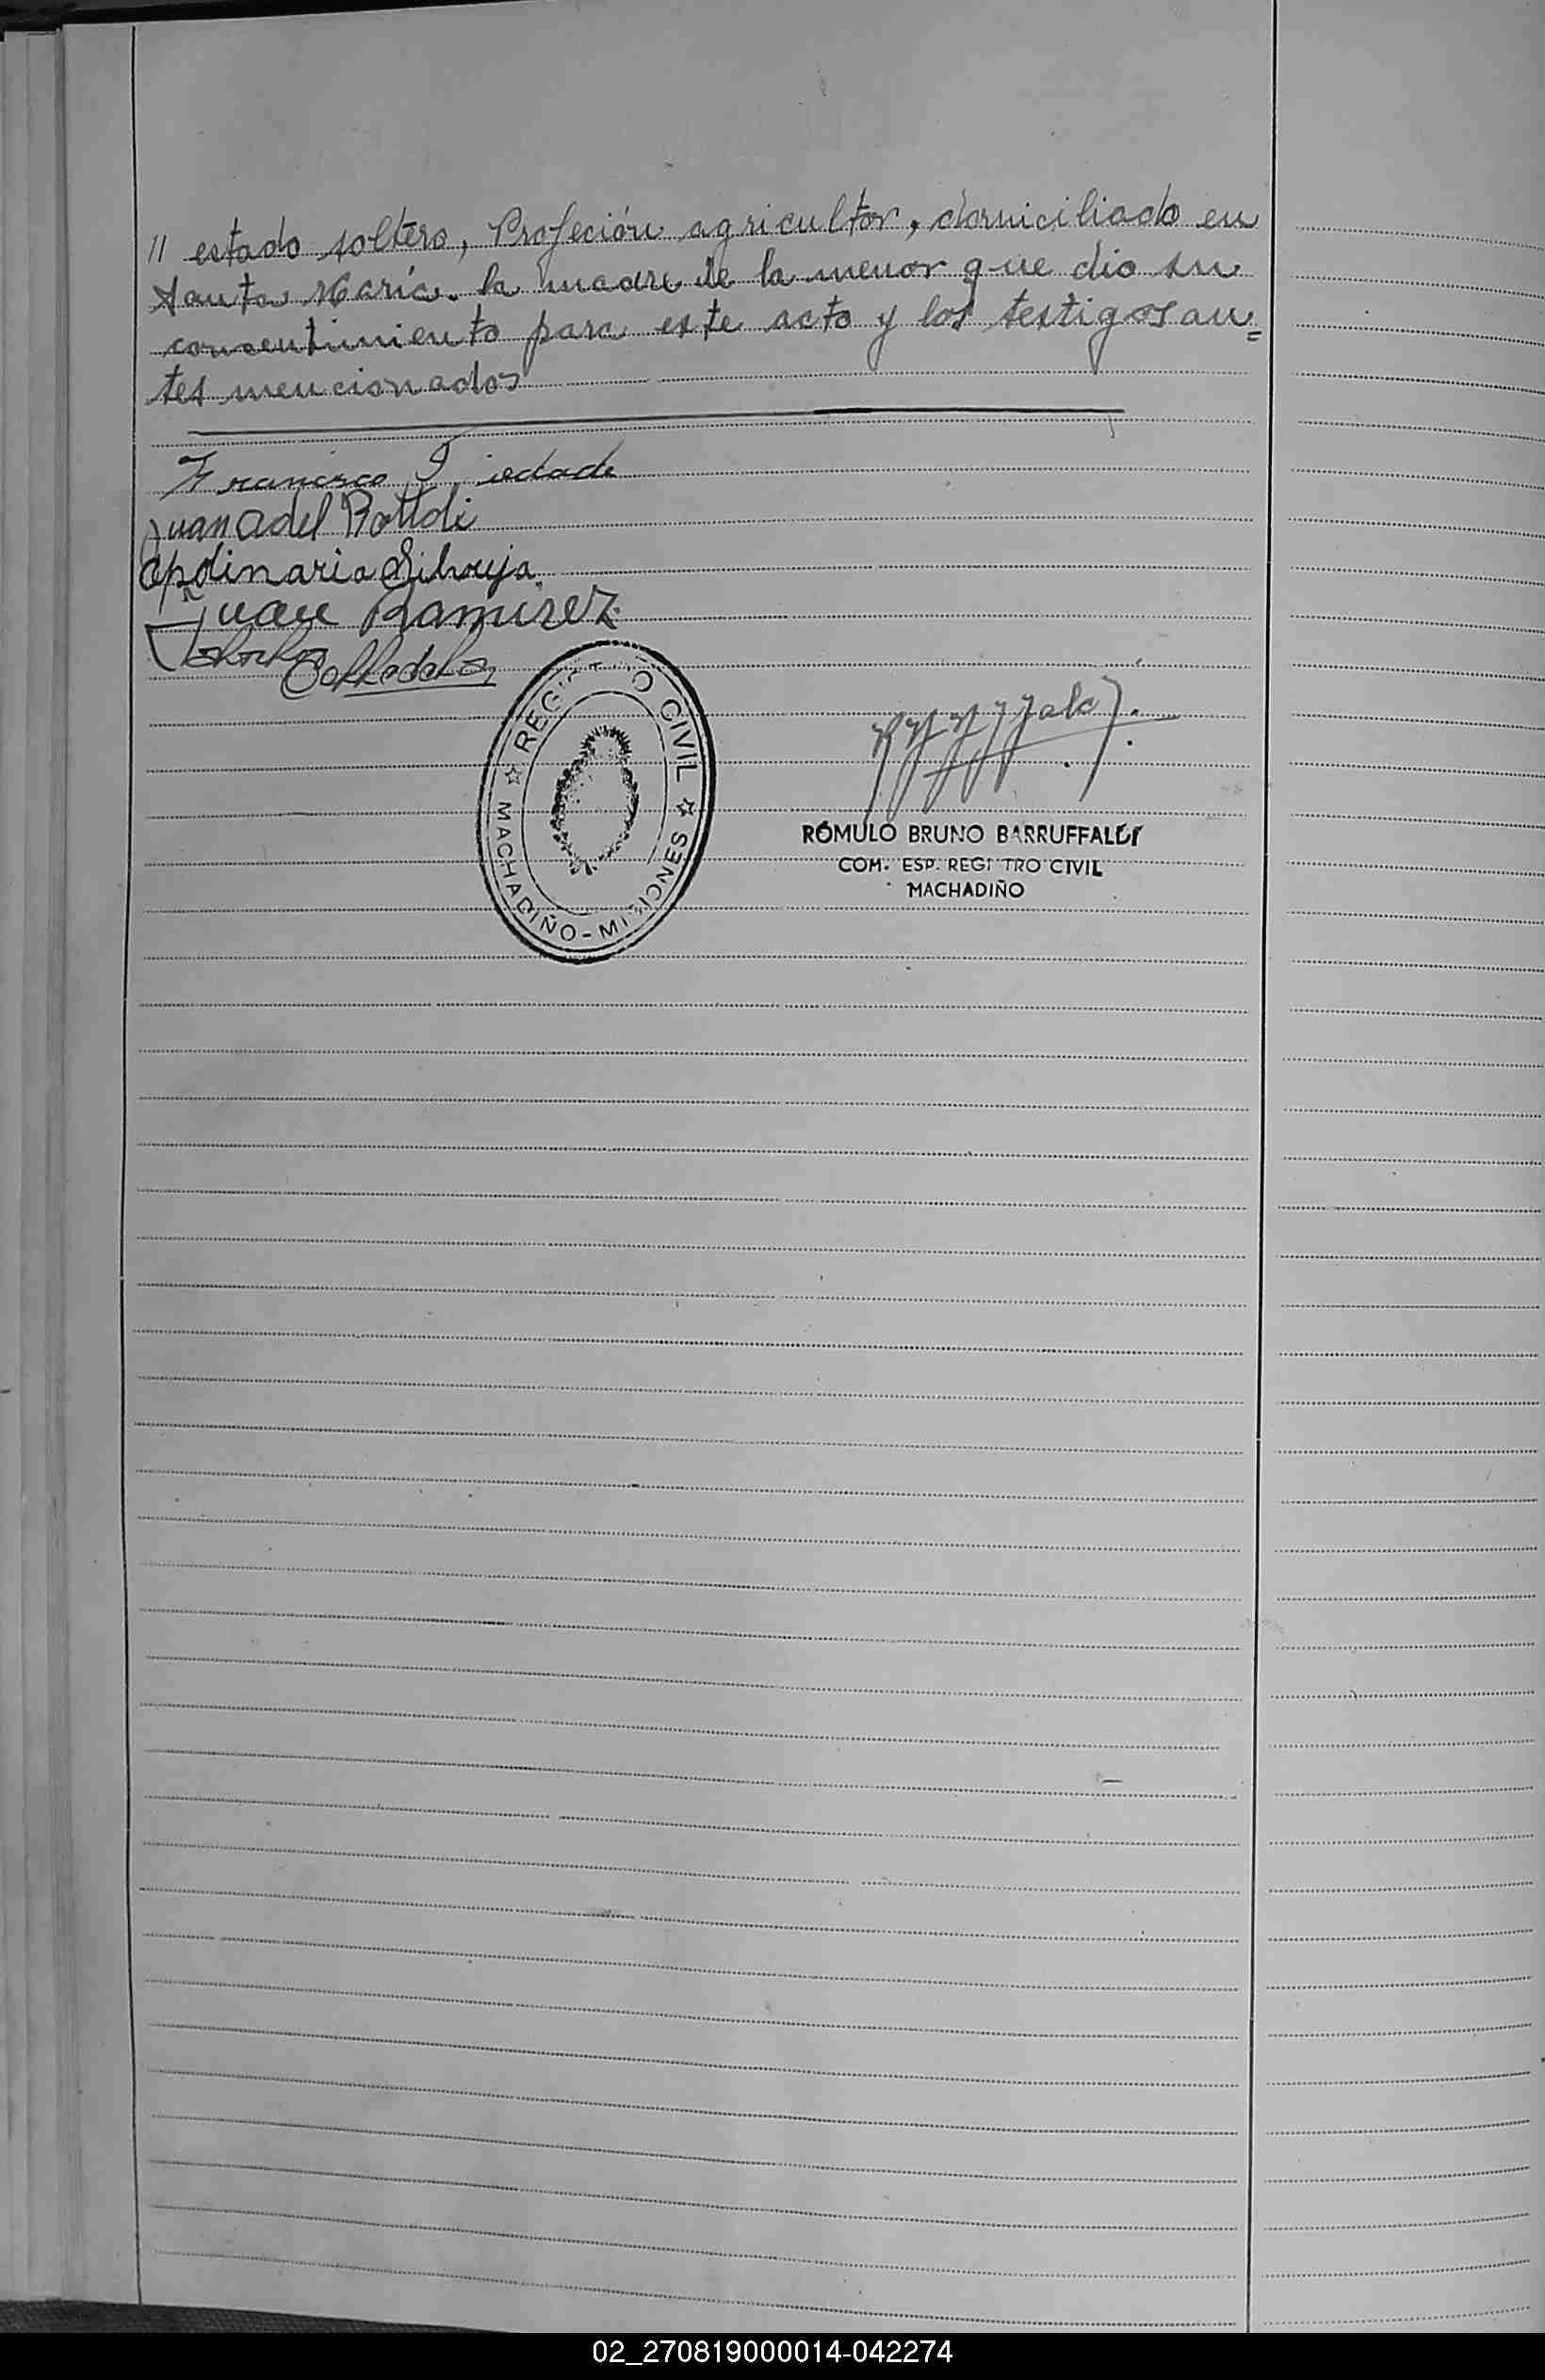 // estado soltero, Profeción agricultor, domiciliado en
Santa María. la madre de la menor que dio su
consentimiento para este acto y los testigos an=
tes mencionados
Francisco Piedade
Juan
Juan Ramirez
REGISTRO CIVIL
MACHADIÑO - MISIONES
RÓMULO BRUNO BARRUFFALDI
COM. ESP. REGI TRO CIVIL
MACHADIÑO
02_270819000014-042274